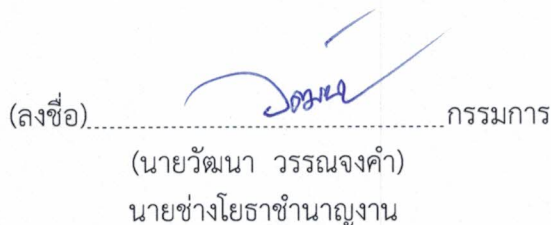 (ลงชื่อ)........................................................กรรมการ
(นายวัฒนา วรรณจงคำ)
นายช่างโยธาชำนาญงาน